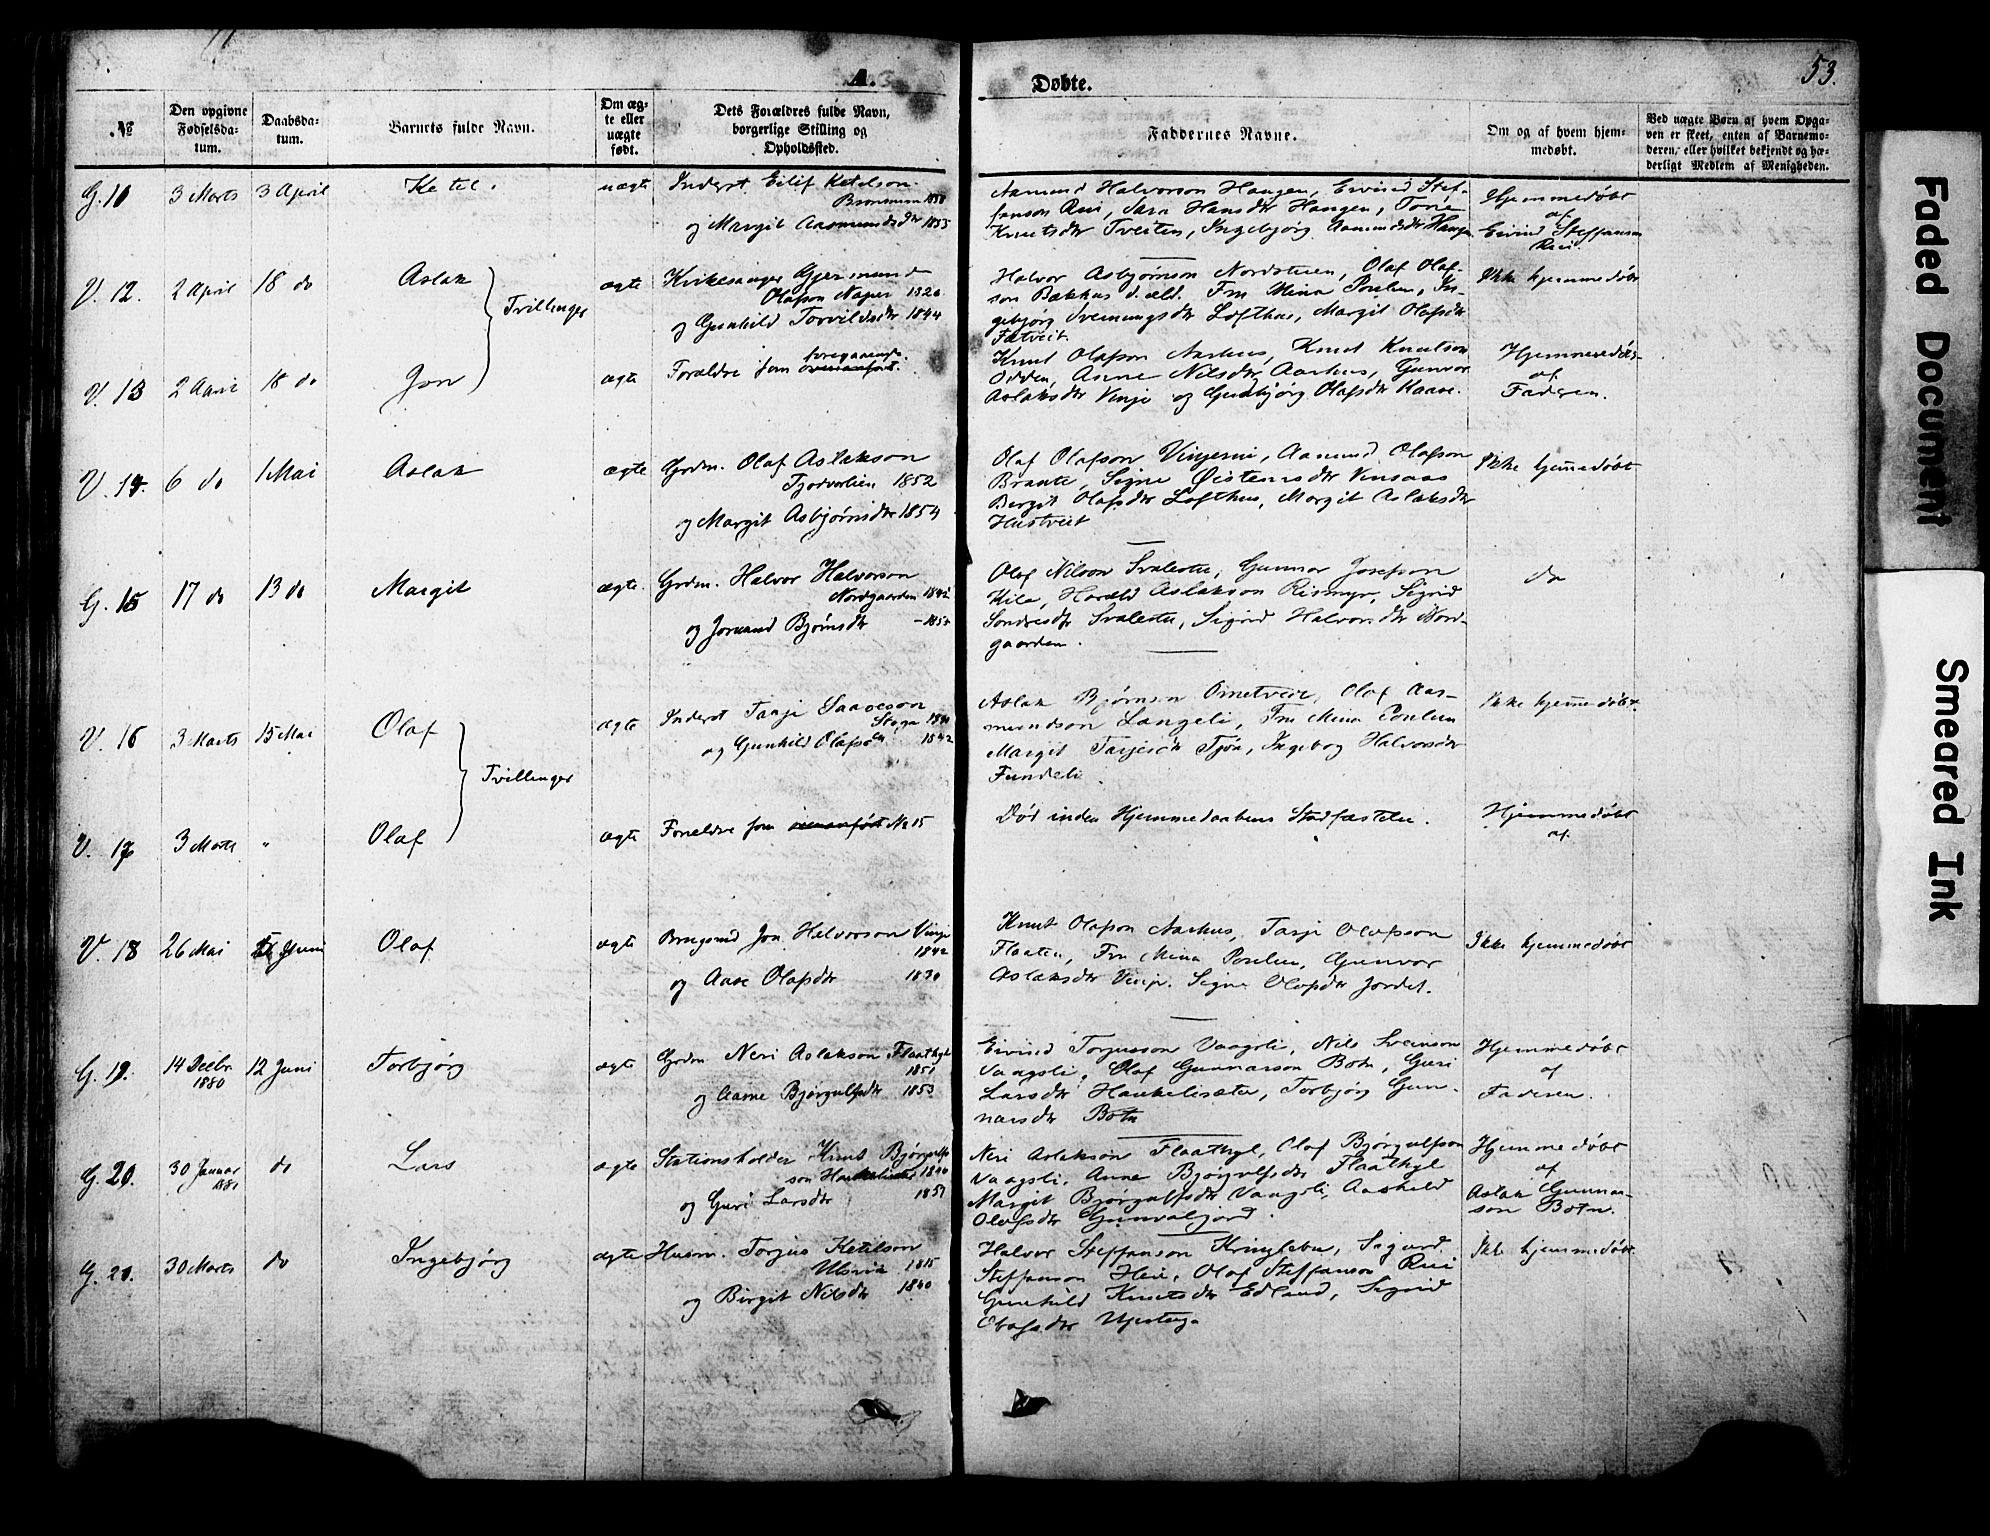 A.
Døbte.
53.
No
Den opgivne Fødselsdatum.
Daabsdatum.
Barnets fulde Navn.
Om ægte eller uægte født.
Dets Forældres fulde Navn, borgerlige Stilling og Opholdssted.
Faddernes Navne.
Om og af hvem hjemmedøbt.
Ved uægte Børn af hvem Opgaven er skeet, enten af Barnemoderen, eller hvilket bekjendt og hæderligt Medlem af Menigheden.
G. 11 3 Marts 3 April Ketel. uægte Inderst Eilif Ketelson
og Margit Aasmundsdtr 1855
Aamund Halvorson Haugen, Eivind Stef-
fanson Rui, Sara Hansdtr Haugen, Tone
Knutsdtr Tveiten, Ingebjørg Aamundsdtr Haugen
Hjemmedøbt
af
Eivind Steffanson
Rui.
V. 12. 2 April 18 do Aslak Tvillinger ægte Kirkesanger Gjermund
Olafson Naper 1820
og Gunhild Torvildsdtr 1844
Halvor Asbjørnson Nordstuen, Olaf Olaf-
son Bækhus d. æld. Fru Mina Poulsen, In-
gebjørg Sveinungsdtr Lofthus, Margit Olafsdtr
Fætveit.
Ikke hjemmedøbt
V. 13 2 April 18 do Jon ægte Forældre som foregaaende.
Knut Olafson Aarhus, Knut Knutson
Odden, Anne Nilsdtr Aarhus, Gunvor
Aslaksdtr Vinje og Gudbjørg Olafsdtr Kaase.
Hjemmedøbt
af
Faderen.
V. 14. 6 do 1 Mai Aslak ægte Grdm. Olaf Aslakson
1852
og Margit Asbjørnsdtr 1854
Olaf Olafson Vinjerui, Aamund Olafson
Brante, Signe Øistensdtr Vinsaas
Bergit Olafsdtr Lofthus, Margit Aslaksdtr
Hustveit
Ikke hjemmedøbt
G. 15 17 do 13 do Margit ægte. Grdm. Halvor Halvorson
Nordgaarden 1842
og Jorand Bjørnsdtr
Olaf Nilson Svalestu, Gunnar Josefson
Kile, Harald Aslakson Rismyr, Sigrid
Sondresdtr Svalestu, Sigrid Halvorsdtr Nord-
gaarden.
do
V. 16 3 Marts 15 Mai Olaf Tvillinger ægte Inderst Tarje Saaveson
og Gunhild Olafsdtr 1842
Aslak Bjørnson Ornetveit, Olaf Aas-
mundson Langeli, Fru Mina Poulsen
Margit Tarjesdtr Tjøn, Ingebog Halvorsdtr
Fundeli.
Ikke hjemmedøbt.
V. 17 3 Marts " Olaf ægte Forældre som No 15
Død inden Hjemmedaabens Stadfæstelse.
Hjemmedøbt
af.
V. 18 26 Mai Juni Olaf ægte Brugsmd Jon Halvorson Vinje
1842
og Aase Olafsdtr 1830
Knut Olafson Aarhus, Tarje Olafsson
Flaaten, Fru Mina Poulsen, Gunvor
Aslaksdtr Vinje. Signe Olafsdtr Jordet.
Ikke hjemmedøbt
G. 19. 14 Decbr 1880 12 Juni Torbjørg ægte Grdm Neri Aslakson Flaathyl
1851
og Aanne Bjørgulfsdtr 1853
Eivind Torjusson Vaagsli, Nils Sveinson
Vaagsli, Olaf Gunnarson Botn, Guri
Larsdtr Haukelisæter, Torbjørg Gun-
narsdtr Botn
Hjemmedøbt
af
Faderen.
G. 20. 30 Januar 1881 do Lars ægte Stationsholder Knut Bjørgulfs-
son Haukelisæter 1846
og Guri Larsdtr 1851
Neri Aslakson Flaathyl, Olaf Bjørgulfson
Vaagsli, Anne Bjørgulfsdtr Flaathyl
Margit Bjørgulfsdtr Vaagsli, Aashild
Olafsdtr Gunvaljord.
Hjemmedøbt
af
Aslak Gunnar-
son Botn.
G. 21. 30 Marts do Ingebjørg ægte Husm. Torjus Ketilson
1815
og Birgit Nilsdtr 1840
Halvor Steffanson Kringlebu, Sigurd
Steffanson Hei, Olaf Steffanson Rui
Gunhild Knutsdtr Edland, Sigrid
Olafsdtr
Ikke hjemmedøbt
Faded Document
Smeared Ink